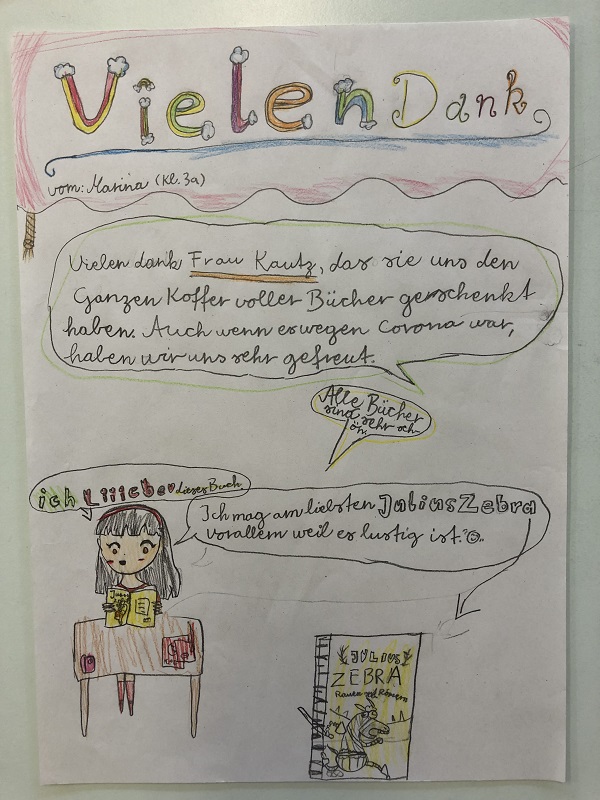 Vielen Dank
vom: Marina (Kl. 3a)
Vielen dank Frau Kautz, das sie uns den
Ganzen Koffer voller Bücher gerschenkt
haben. Auch wenn es wegen Corona war,
haben wir uns sehr gefreut.
Alle Bücher
sind sehr sch-
ön.
ich Liiieber dieses Buch
Ich mag am liebsten Julius Zebra
vorallem weil es lustig ist.
JULIUS
ZEBRA
Raufen mit Römern